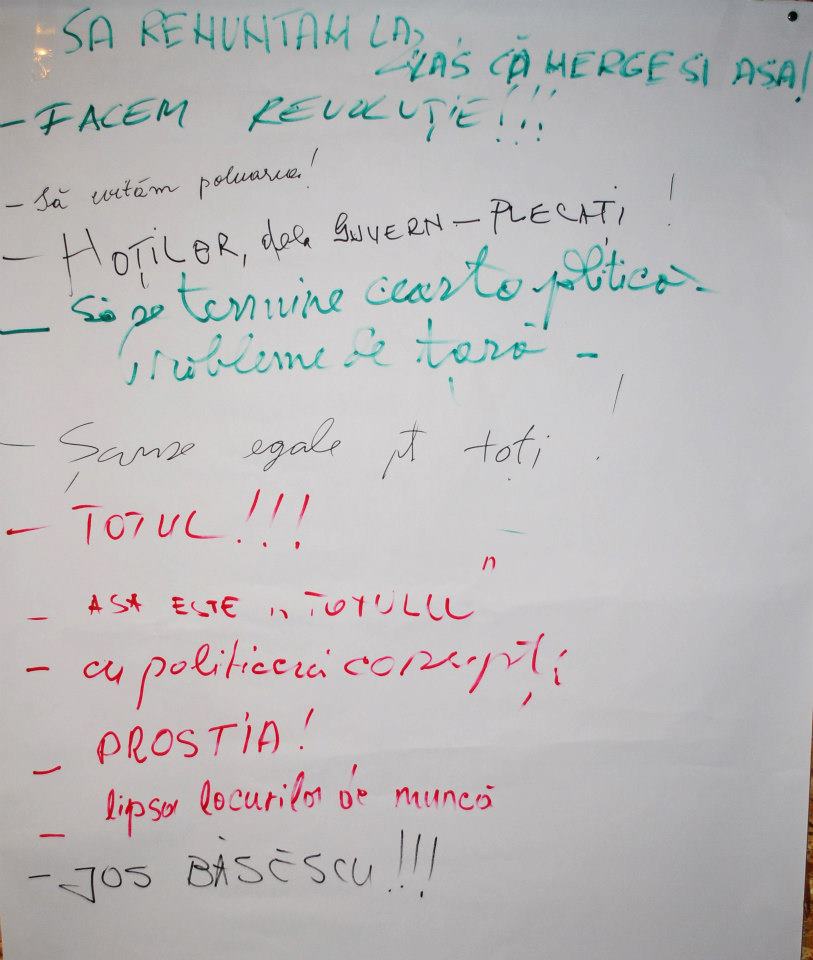 SA RENUNTAM LA
"LAS CĂ MERGE SI ASA!
- FACEM REVOLUȚIE!!!
- Să uităm poluarea!
- HOȚILOR, dela GUVERN - PLECAȚI !
- Să se termine cearta politică -
probleme de țară -
- Șanse egale pt toți !
- TOTUL!!!
- ASA ESTE "TOTULLL"
- cu politicieni corupți
- PROSTIA!
- lipsa locurilor de muncă
- JOS BĂSĒSCU!!!